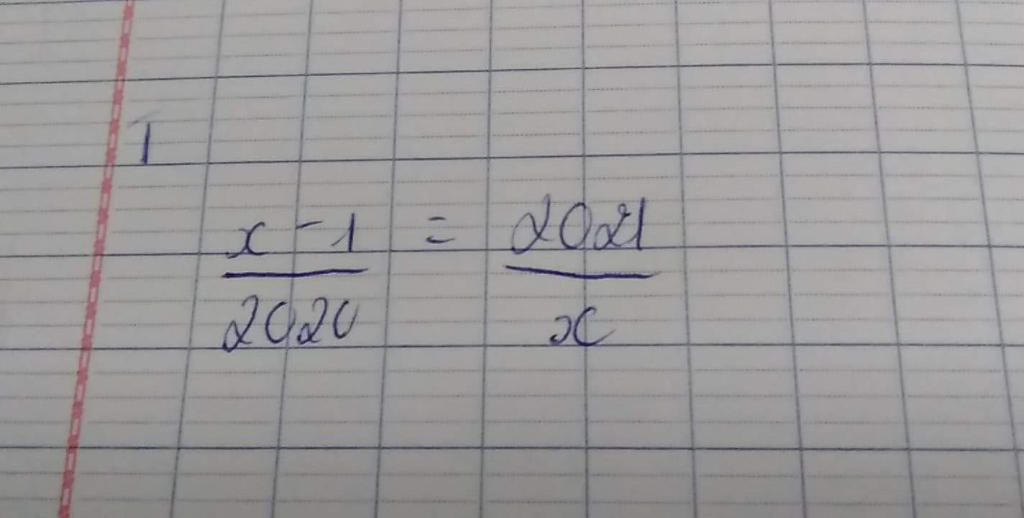 1
x - 1 = 2021
2020 x